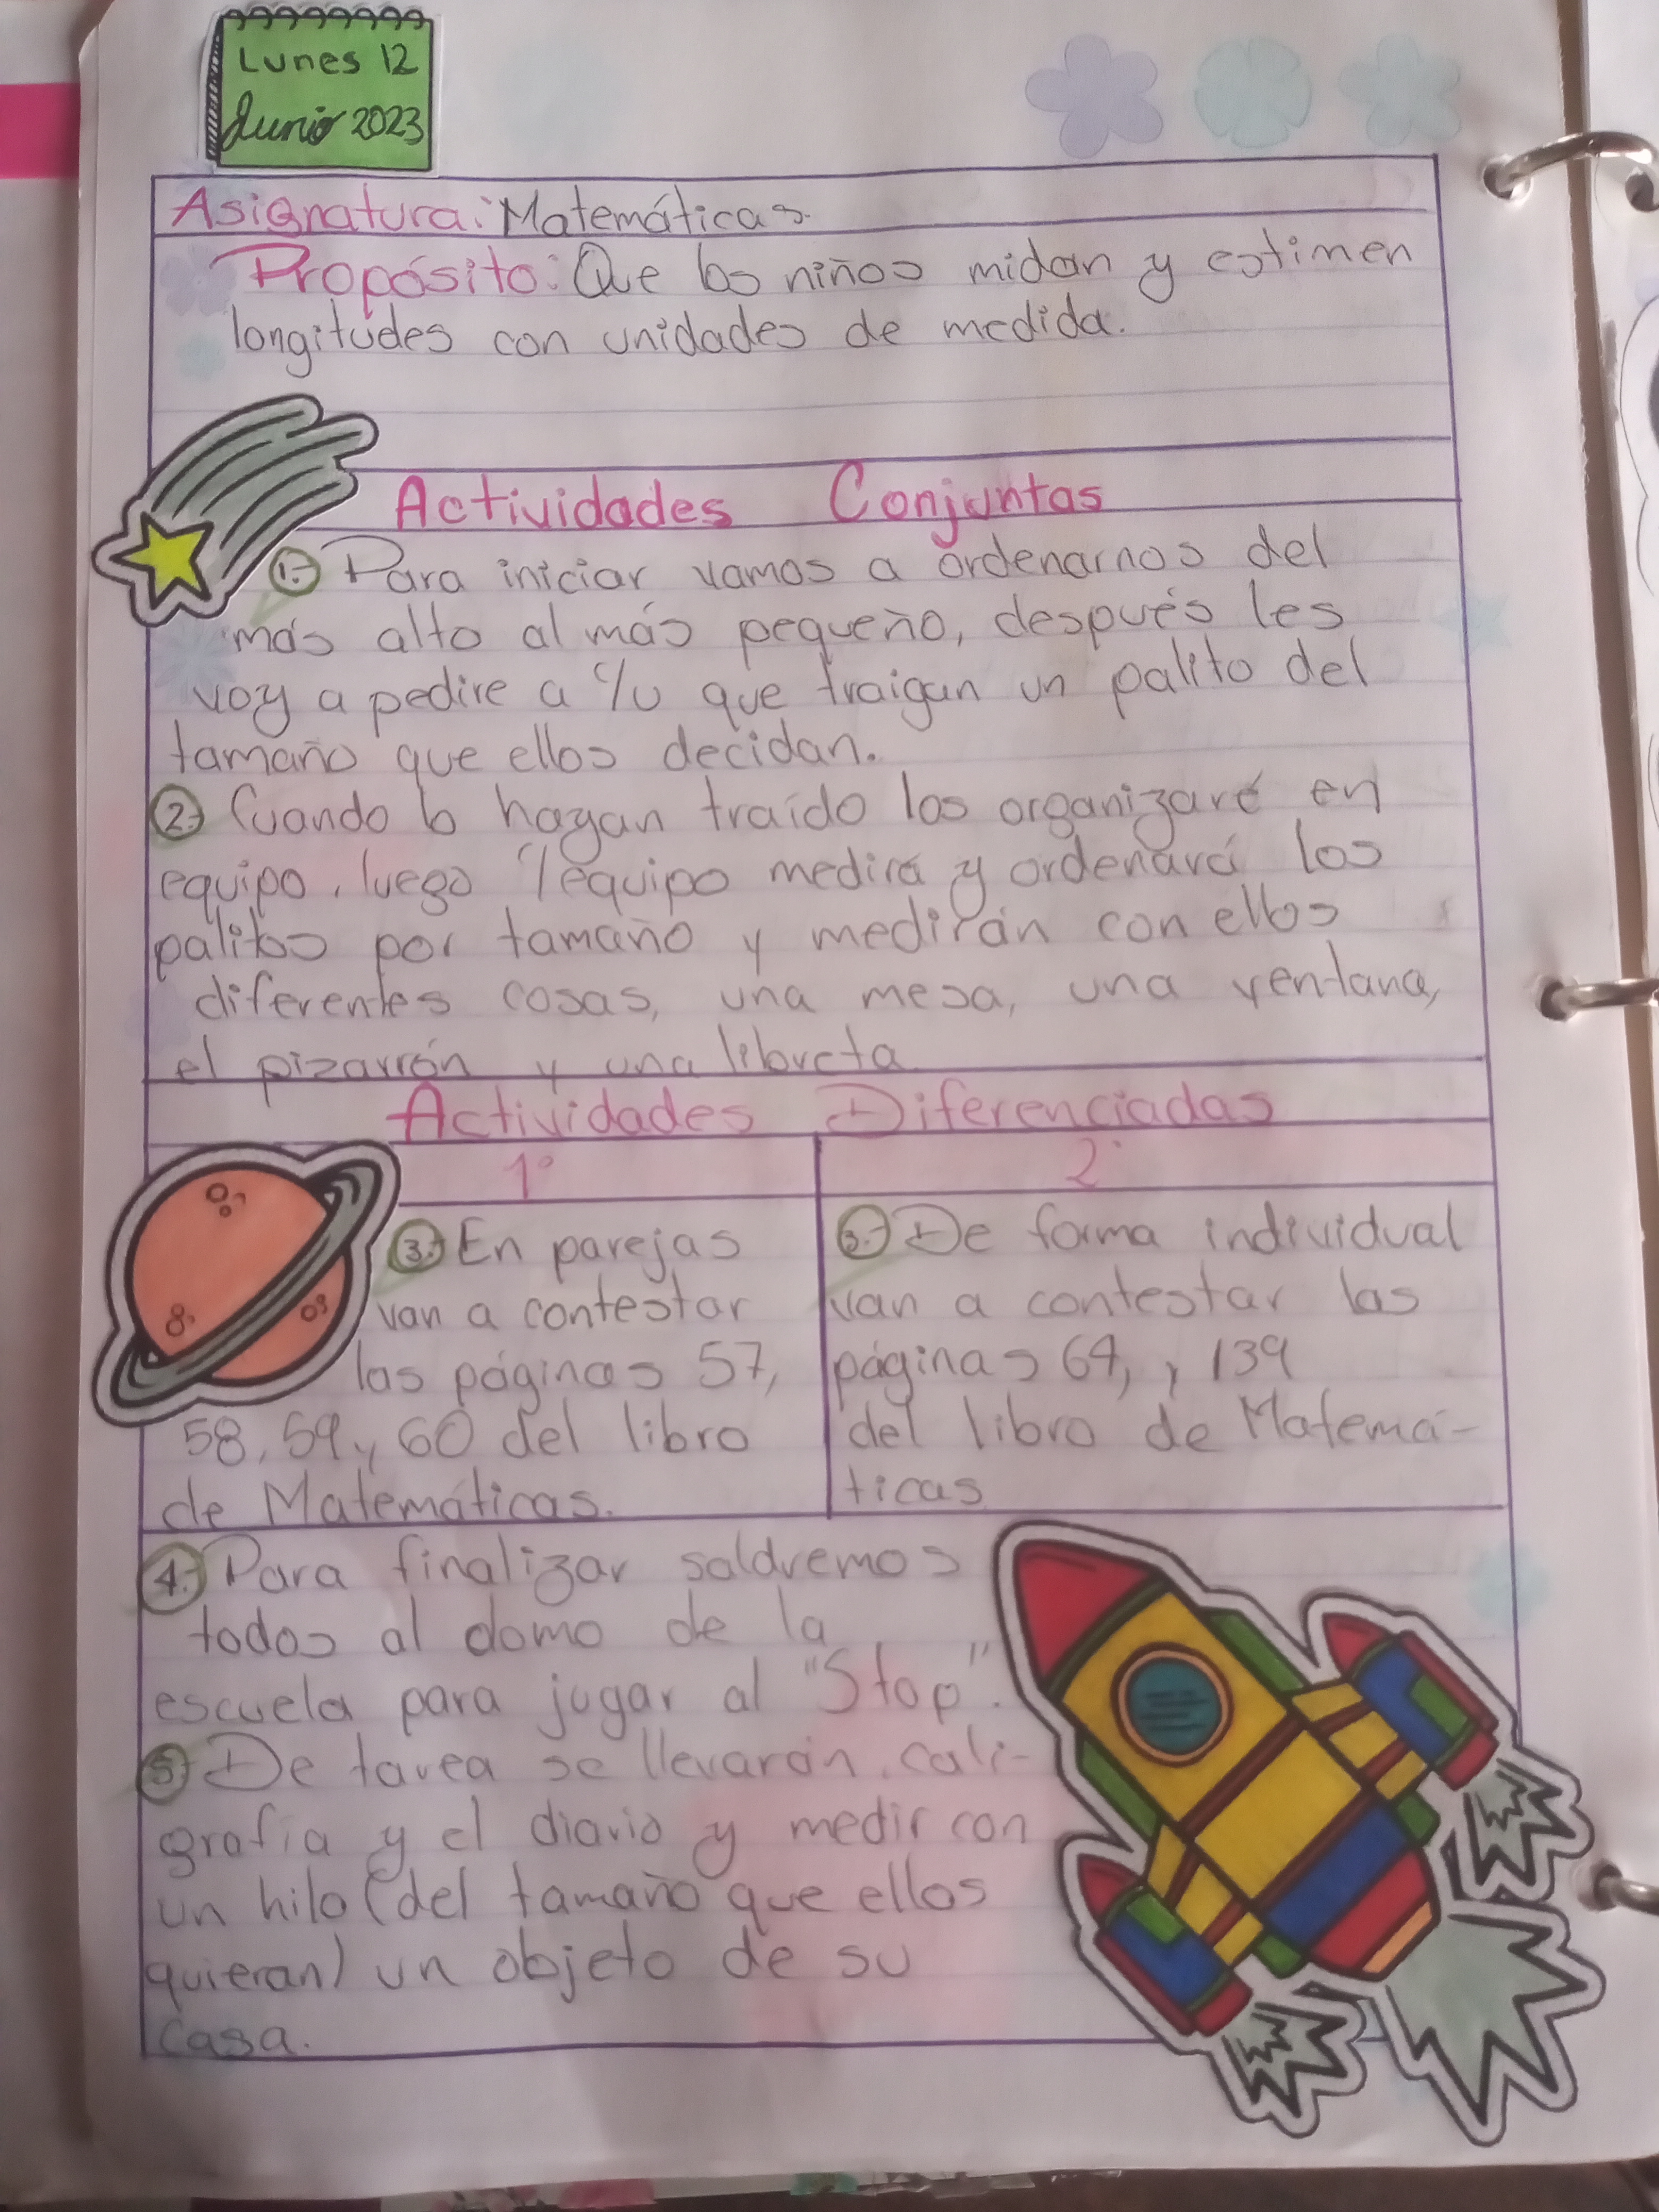 Lunes 12
Junio 2023
Asignatura: Matemáticas.
Propósito: Que los niños midan y estimen
longitudes con unidades de medida.
Actividades Conjuntas
1.- Para iniciar vamos a ordenarnos del
más alto al más pequeño, después les
voy a pedire a c/u que traigan un palito del
tamaño que ellos decidan.
2.- Cuando lo hayan traído los organizaré en
equipo, luego c/equipo medirá y ordenará los
palitos por tamaño y medirán con ellos
diferentes cosas, una mesa, una ventana,
el pizarrón y una libreta
Actividades Diferenciadas
1°
3.- En parejas
van a contestar
las páginas 57,
58, 59 y 60 del libro
de Matemáticas.
2°
3.- De forma individual
van a contestar las
páginas 64, y 139
del libro de Matemá-
ticas
4.- Para finalizar saldremos
todos al domo de la
escuela para jugar al "Stop".
5.- De tarea se llevarán, cali-
grafía y el diario y medir con
un hilo (del tamaño que ellos
quieran) un objeto de su
casa.